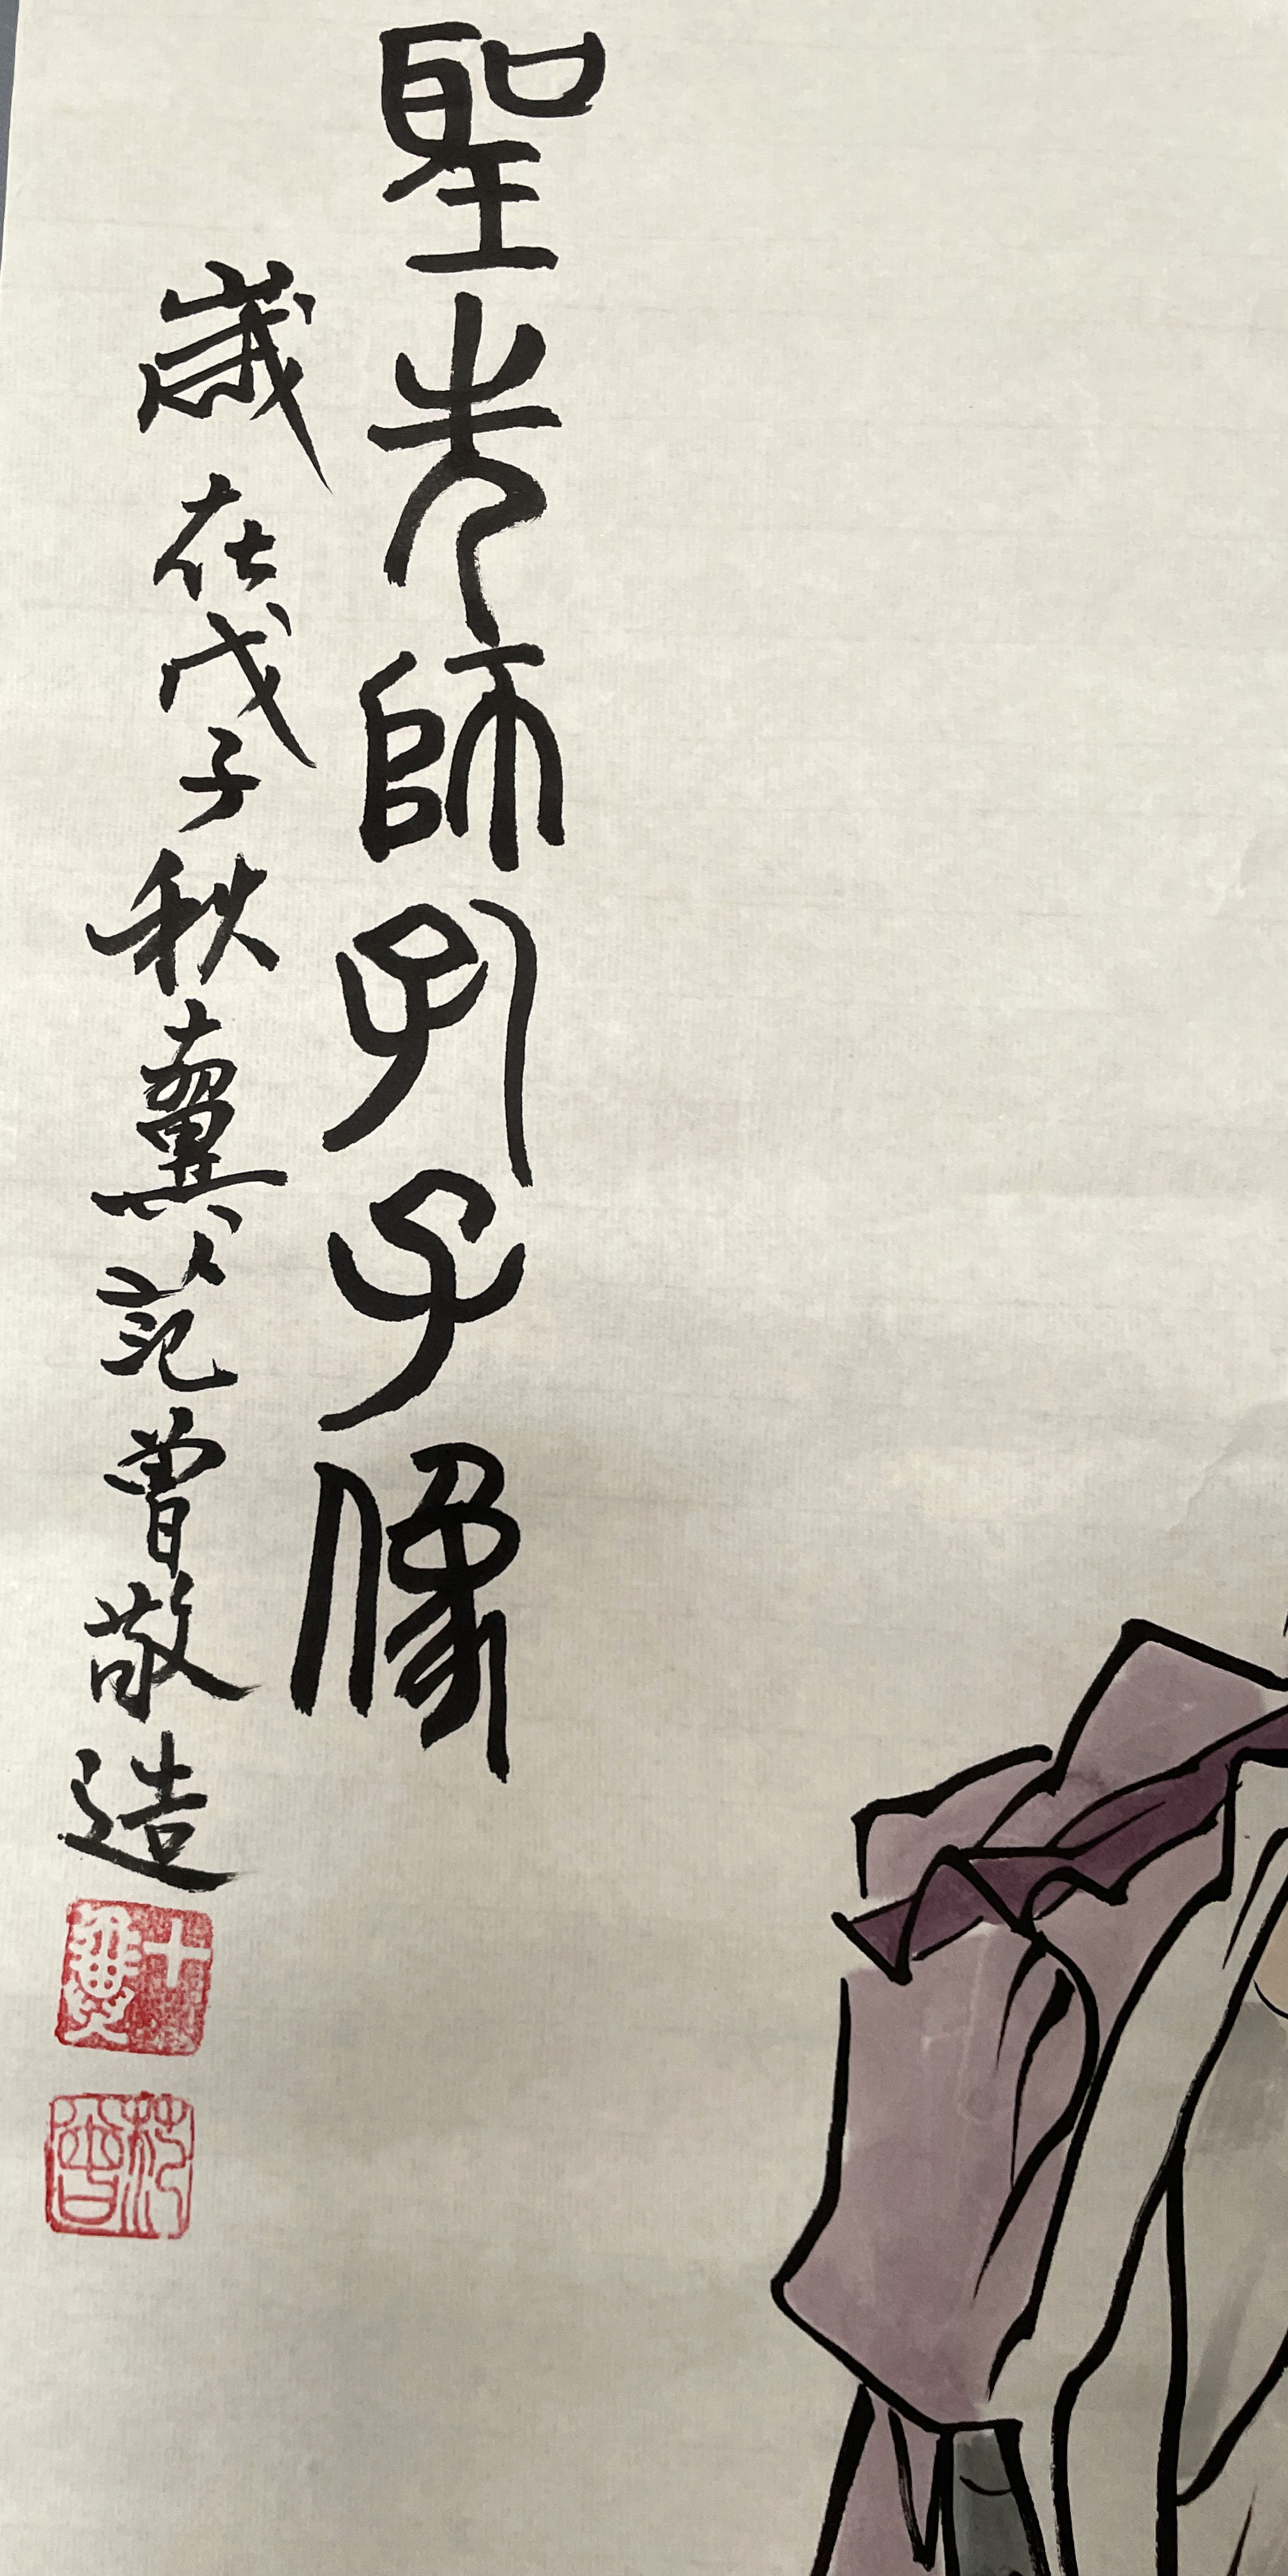 聖先師孔子像
歲在戊子秋十翼范曾敬造
十翼
范曾